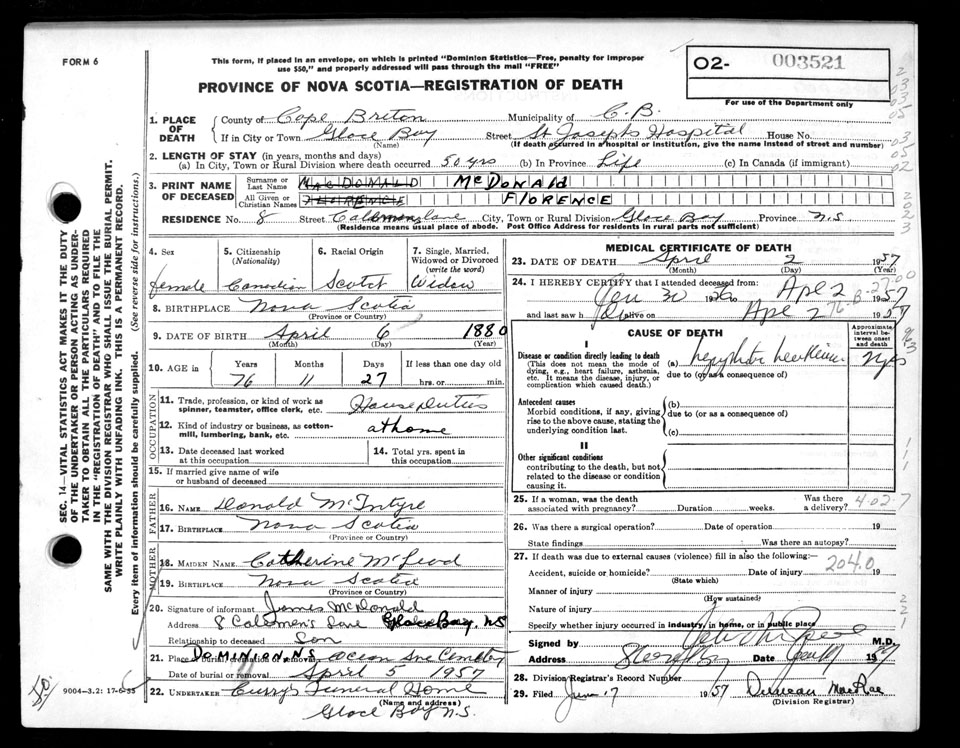 FORM 6
This form, if placed in an envelope, on which is printed "Dominion Statistics—Free, penalty for improper
use $50," and properly addressed will pass through the mail "FREE"
O2- 003521
For use of the Department only
PROVINCE OF NOVA SCOTIA—REGISTRATION OF DEATH
1. PLACE OF DEATH
County of Cape Breton Municipality of C.B.
If in City or Town Glace Bay Street St Josephs Hospital House No.
(Name) (If death occurred in a hospital or institution, give the name instead of street and number)
2. LENGTH OF STAY (in years, months and days)
(a) In City, Town or Rural Division where death occurred 50 yrs (b) In Province Life (c) In Canada (if immigrant)
3. PRINT NAME OF DECEASED
Surname or Last Name MACDONALD McDonald
All Given or Christian Names FLORENCE FLORENCE
RESIDENCE No. 8 Street Lane City, Town or Rural Division Glace Bay Province N.S
(Residence means usual place of abode. Post Office Address for residents in rural parts not sufficient)
4. Sex female
5. Citizenship (Nationality) Canadian
6. Racial Origin Scotch
7. Single, Married, Widowed or Divorced (write the word) Widow
8. BIRTHPLACE Nova Scotia
(Province or Country)
9. DATE OF BIRTH April 6 1880
(Month) (Day) (Year)
10. AGE in Years Months Days If less than one day old
76 11 27 hrs. or min.
OCCUPATION
11. Trade, profession, or kind of work as spinner, teamster, office clerk, etc. House Duties
12. Kind of industry or business, as cotton-mill, lumbering, bank, etc. at home
13. Date deceased last worked at this occupation
14. Total yrs. spent in this occupation
15. If married give name of wife or husband of deceased
FATHER
16. NAME Donald McIntyre
17. BIRTHPLACE Nova Scotia
(Province or Country)
MOTHER
18. MAIDEN NAME Catherine McLeod
19. BIRTHPLACE Nova Scotia
(Province or Country)
20. Signature of informant James McDonald
Address 8 Lane Glace Bay, NS
Relationship to deceased Son
21. Place of burial, cremation or removal DOMINION, N.S. Cemetery
Date of burial or removal April 5 1957
22. UNDERTAKER Curry's Funeral Home
(Name and address)
Glace Bay N.S.
9004—3.2: 17-6-55
MEDICAL CERTIFICATE OF DEATH
23. DATE OF DEATH April 2 1957
(Month) (Day) (Year)
24. I HEREBY CERTIFY that I attended deceased from:
Jan 30 1956 to Apl 2 1957
and last saw h alive on Apl 2 1957
CAUSE OF DEATH
Approximate interval between onset and death
I
Disease or condition directly leading to death
(This does not mean the mode of dying, e.g., heart failure, asthenia, etc. It means the disease, injury, or complication which caused death.)
(a)
due to (or as a consequence of)
Antecedent causes
Morbid conditions, if any, giving rise to the above cause, stating the underlying condition last.
(b)
due to (or as a consequence of)
(c)
II
Other significant conditions
contributing to the death, but not related to the disease or condition causing it.
25. If a woman, was the death associated with pregnancy? Duration weeks. Was there a delivery?
402.7
26. Was there a surgical operation? Date of operation 19
State findings Was there an autopsy?
27. If death was due to external causes (violence) fill in also the following:—
Accident, suicide or homicide? Date of injury 19
2040
(State which)
Manner of injury
(How sustained)
Nature of injury
Specify whether injury occurred in industry, in home, or in public place
Signed by M.D.
Address Date 19
28. Division Registrar's Record Number
29. Filed June 17 1957 Duncan MacRae
(Division Registrar)
SEC. 14—VITAL STATISTICS ACT MAKES IT THE DUTY
OF THE UNDERTAKER OR PERSON ACTING AS UNDERTAKER
TO OBTAIN ALL THE PARTICULARS REQUIRED
IN THE "REGISTRATION OF DEATH" AND TO FILE THE
SAME WITH THE DIVISION REGISTRAR WHO SHALL ISSUE THE BURIAL PERMIT.
WRITE PLAINLY WITH UNFADING INK. THIS IS A PERMANENT RECORD.
Every item of information should be carefully supplied. (See reverse side for instructions.)